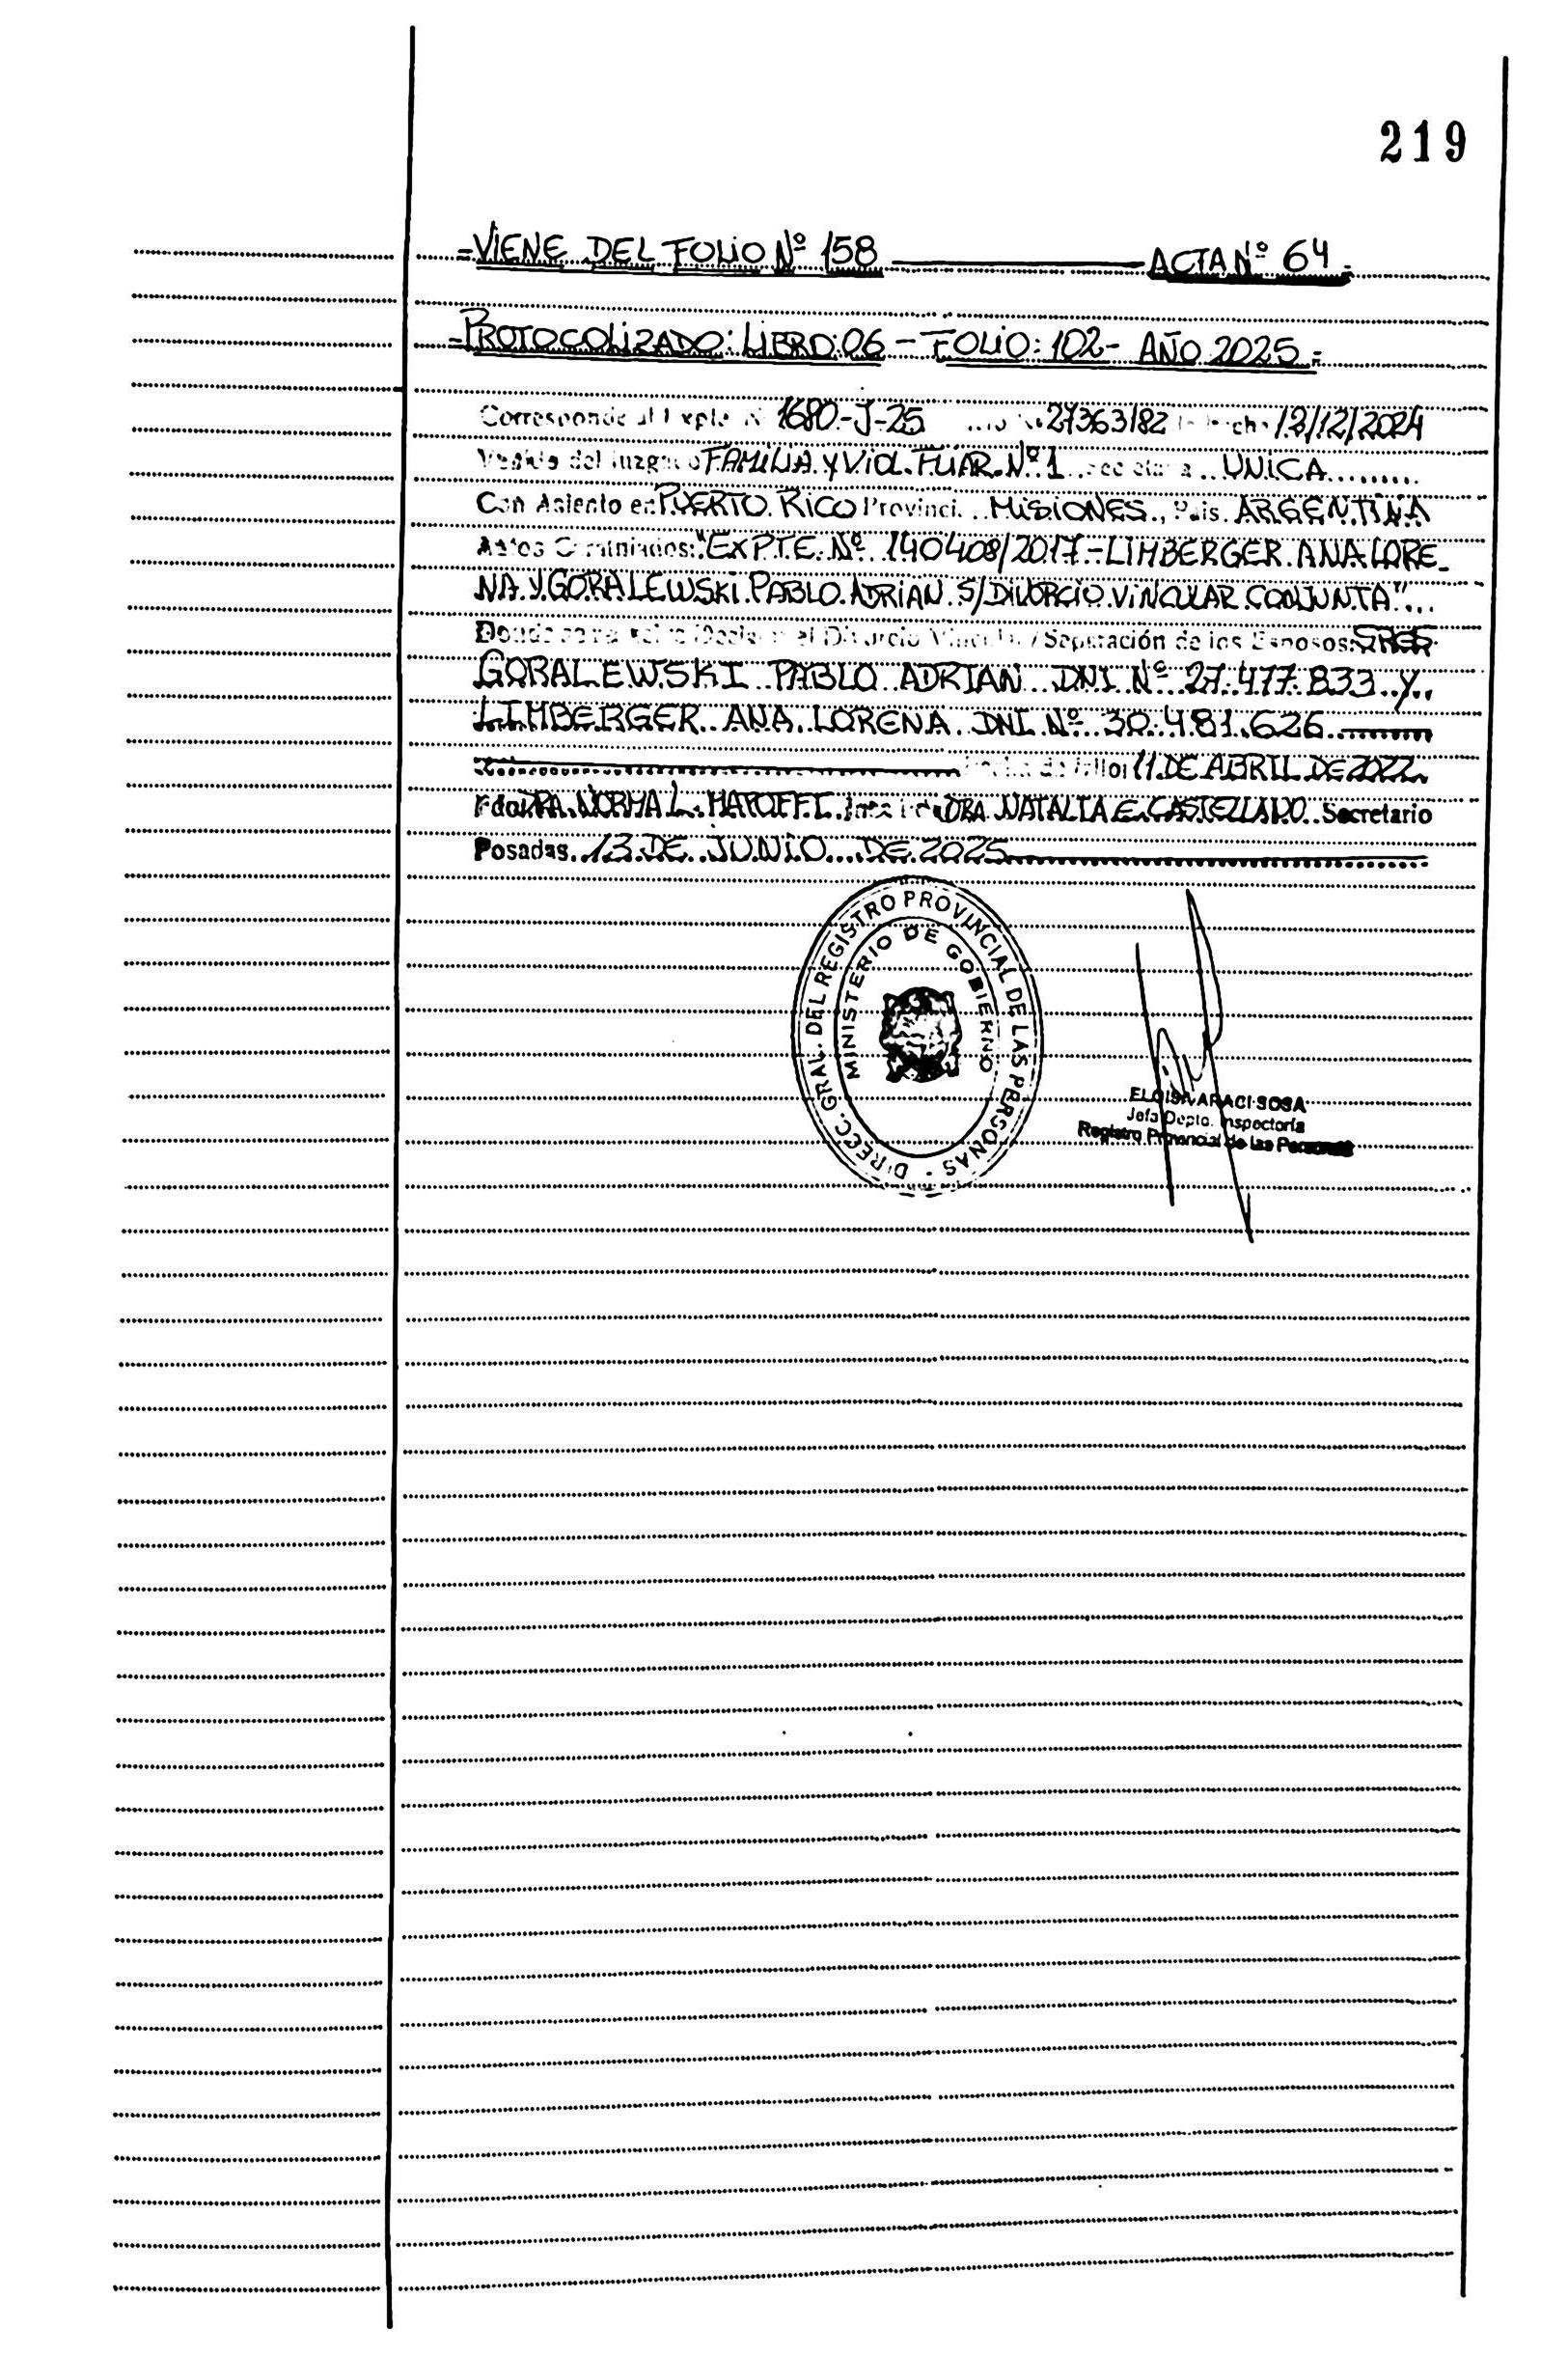 219
=VIENE DEL FOLIO Nº 158 ——— ACTA Nº 64=
=PROTOCOLIZADO: LIBRO: 06 - FOLIO: 102 - AÑO 2025=
Corresponde al Expte. Nº 1680-J-25 27363182 12/12/2024
del Juzgado FAMILIA Y VIOL. FLIAR. Nº 1 Secretaria UNICA
Con Asiento en PUERTO RICO Provinci. MISIONES, Pais. ARGENTINA
Autos Caratulados: "EXPTE. Nº 140408/2017 - LIMBERGER ANA LORE-
NA Y GORALEWSKI PABLO ADRIAN S/DIVORCIO VINCULAR CONJUNTA"...
Donde se resolvió Declarar el Divorcio Vincular/Separación de los Esposos: SRES
GORALEWSKI PABLO ADRIAN DNI Nº 27.477.833 Y
LIMBERGER ANA LORENA DNI Nº 30.481.626
Fecha de fallo: 11 DE ABRIL DE 2022
Fdo: DRA. NORMA L. DRA. NATALIA E. CASTELLANO Secretario
Posadas 13 DE JUNIO DE 2025
DIRECC. GRAL. DEL REGISTRO PROVINCIAL DE LAS PERSONAS
MINISTERIO DE GOBIERNO
ELOISA ARACI SOSA
Jefa Depto. Inspectoría
Registro Provincial de las Personas